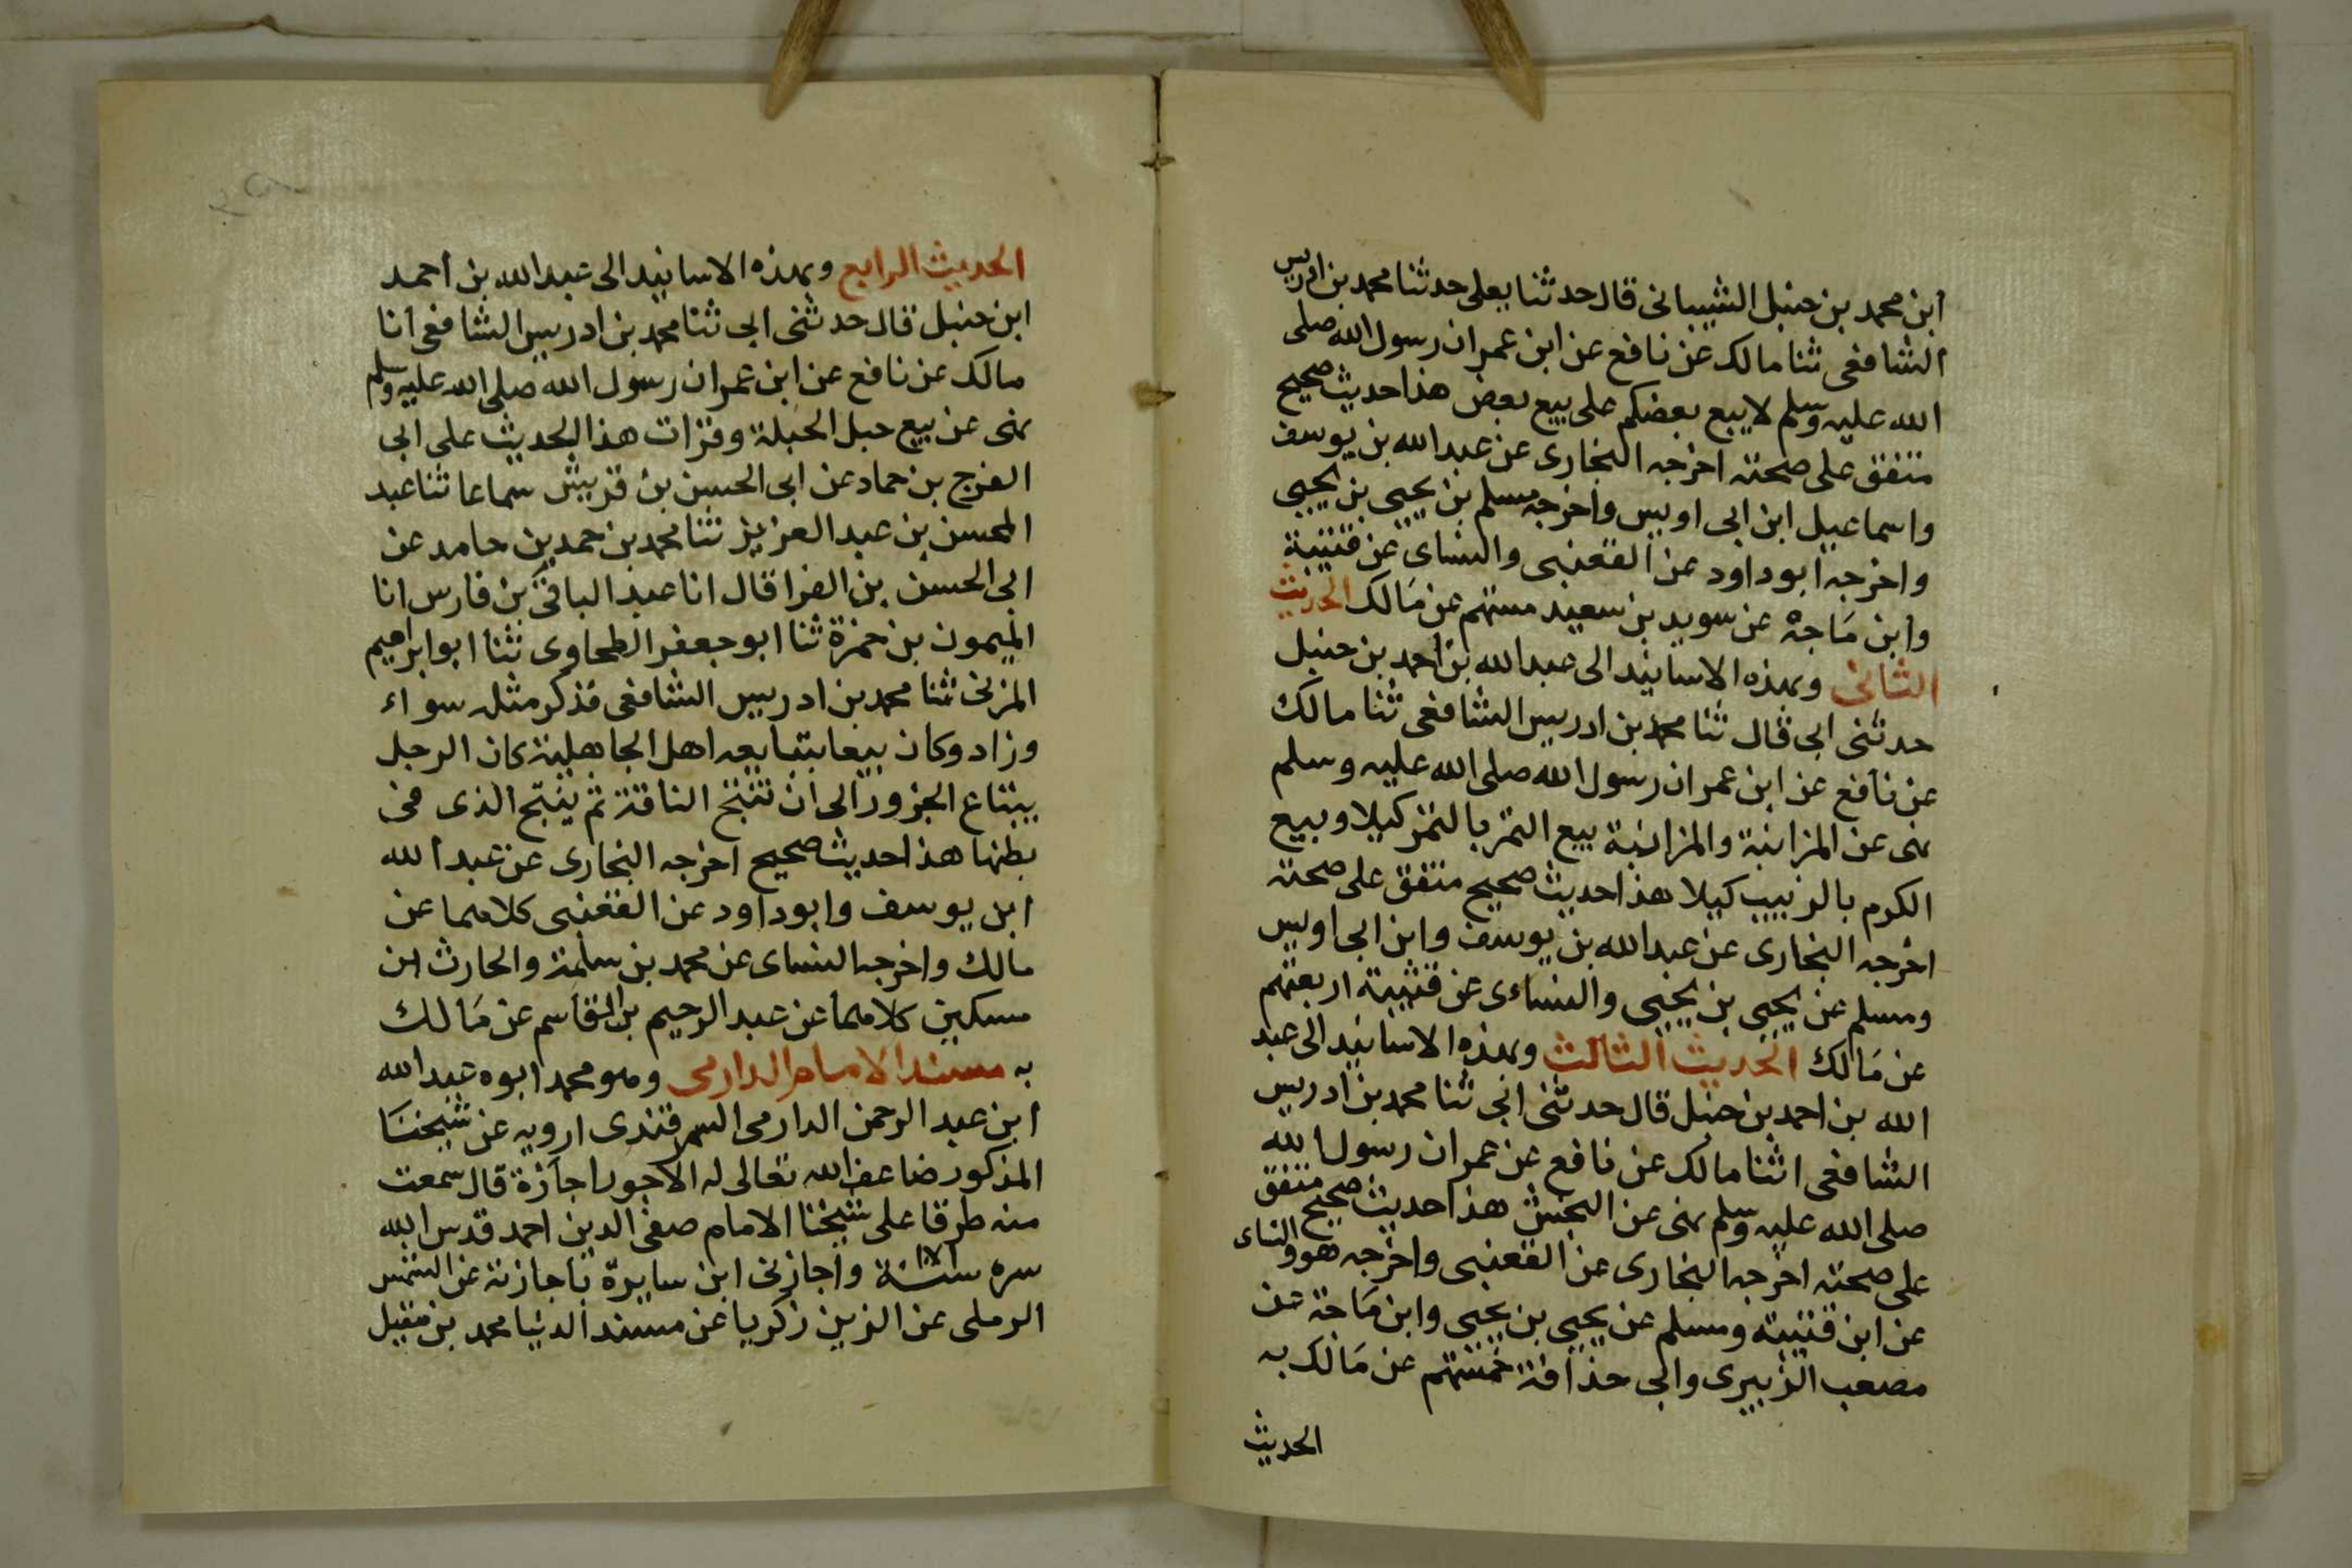 ابن محمد بن حنبل الشيبانى قال حدثنا يعلى حدثنا محمد بن ادريس
الشافعى ثنا مالك عن نافع عن ابن عمر ان رسول الله صلى
الله عليه وسلم لا يبع بعضكم على بيع بعض هذا حديث صحيح
متفق على صحته اخرجه البخارى عن عبد الله بن يوسف
واسماعيل ابن ابى اويس واخرجه مسلم بن يحيى بن يحيى
واخرجه ابو داود عن القعنبى والنساى عن قتيبة
وابن مَاجة عن سويد بن سعيد ستتهم عن مَالك الحديث
الثانى وبهذه الاسانيد الى عبد الله بن احمد بن حنبل
حدثنى ابى قال ثنا محمد بن ادريس الشافعى ثنا مالك
عن نافع عن ابن عمر ان رسول الله صلى الله عليه وسلم
نهى عن المزابنة والمزابنة بيع الثمر بالتمر كيلا وبيع
الكرم بالزبيب كيلا هذا حديث صحيح متفق على صحته
اخرجه البخارى عن عبد الله بن يوسف وابن ابى اويس
ومسلم عن يحيى بن يحيى والنساءى عن قتيبة اربعتهم
عن مَالك الحديث الثالث وبهذه الاسانيد الى عبد
الله بن احمد بن حنبل قال حدثنى ابى ثنا محمد بن ادريس
الشافعى اثنا مالك عن نافع عن عمر ان رسول الله
صلى الله عليه وسلم نهى عن النجش هذا حديث صحيح متفق
على صحته اخرجه البخارى عن القعنبى واخرجه هو والنساء
عن ابن قتيبة ومسلم عن يحيى بن يحيى وابن مَاجة عن
مصعب الزبيرى وابى حذافة خمستهم عن مَالك به
الحديث
الحديث الرابع وبهذه الاسانيد الى عبد الله بن احمد
ابن حنبل قال حدثنى ابى ثنا محمد بن ادريس الشافعى انا
مالك عن نافع عن ابن عمر ان رسول الله صلى الله عليه وسلم
نهى عن بيع حبل الحبلة وقرات هذا الحديث على ابى
الفرج بن حماد عن ابى الحسن بن قريش سماعا ثنا عبد
المحسن بن عبد العزيز ثنا محمد بن حمد بن حامد عن
ابى الحسن بن الفرا قال انا عبد الباقى بن فارس انا
الميمون بن حمزة ثنا ابو جعفر الطحاوى ثنا ابو ابراهيم
المزنى ثنا محمد بن ادريس الشافعى فذكر مثله سواء
وزاد وكان بيعا يتبايعه اهل الجاهلية كان الرجل
يبتاع الجزور الى ان تنتج الناقة ثم ينتج الذى فى
بطنها هذا حديث صحيح اخرجه البخارى عن عبد الله
ابن يوسف وابو داود عن القعنبى كلاهما عن
مالك واخرجه النساى عن محمد بن سلمة والحارث ابن
مسكين كلاهما عن عبد الرحيم بن القاسم عن مَالك
به مسند الامام الدارمى وهو محمد ابوه عبد الله
ابن عبد الرحمن الدارمى السمرقندى ارويه عن شيخنَا
المذكور ضاعف الله تعالى له الاجور اجازة قال سمعت
منه طرفا على شيخنا الامام صفى الدين احمد قدس الله
سره سنة واجازنى ابن سايره باجازته عن الشمس
الرملى عن الزين زكريا عن مسند الدنيا محمد بن مقبل